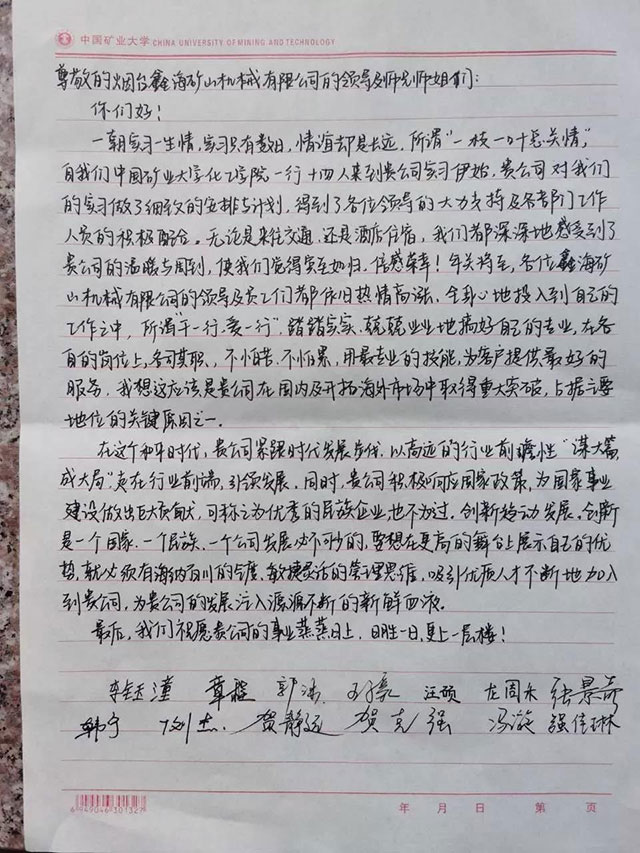 中国矿业大学 CHINA UNIVERSITY OF MINING AND TECHNOLOGY
尊敬的烟台鑫海矿山机械有限公司的领导及师兄师姐们:
你们好!
一朝实习一生情,实习只有数日,情谊却是长远,所谓"一枝一叶总关情",
自我们中国矿业大学化工学院一行十四人来到贵公司实习伊始,贵公司对我们
的实习做了细致的安排与计划,得到了各位领导的大力支持及各部门工作
人员的积极配合。无论是来往交通,还是酒店住宿,我们都深深地感受到了
贵公司的温暖与周到,使我们觉得宾至如归,倍感荣幸!年关将至,各位鑫海矿
山机械有限公司的领导及员工们都依旧热情高涨,全身心地投入到自己的
工作之中,所谓"干一行爱一行",踏踏实实、兢兢业业地搞好自己的专业,在各
自的岗位上,各司其职,不怕苦、不怕累,用最专业的技能,为客户提供最好的
服务,我想这应该是贵公司在国内及开拓海外市场中取得重大突破,占据主要
地位的关键原因之一。
在这个和平时代,贵公司紧跟时代发展步伐,以高远的行业前瞻性"谋大篇,
成大局"走在行业前端,引领发展。同时,贵公司积极响应国家政策,为国家事业
建设做出巨大贡献,可称之为优秀的民族企业也不为过。创新驱动发展,创新
是一个国家、一个民族、一个公司发展必不可少的,要想在更高的舞台上展示自己的优
势,就必须有海纳百川的气度、敏捷灵活的管理思维,吸引优质人才不断地加入
到贵公司,为贵公司的发展注入源源不断的新鲜血液。
最后,我们祝愿贵公司的事业蒸蒸日上,日胜一日,更上一层楼!
李钰潼 章程 郭 汪硕 左周永 张景奇
韩宁 刘杰 贺静远 贺克强 冯漩 强佳琳
6 949046 301327
年 月 日 第 页